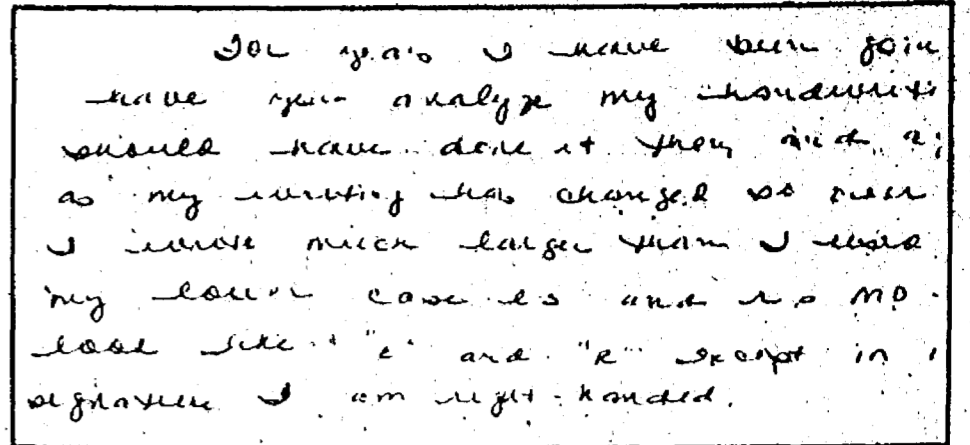 For years I have been goin
have you analyze my handwriti
should have done it then and a
as my writing has changed so
I wrote much larger than I
my lower case es and rs no
look like "e" and "R" except in
signature I am right-handed.